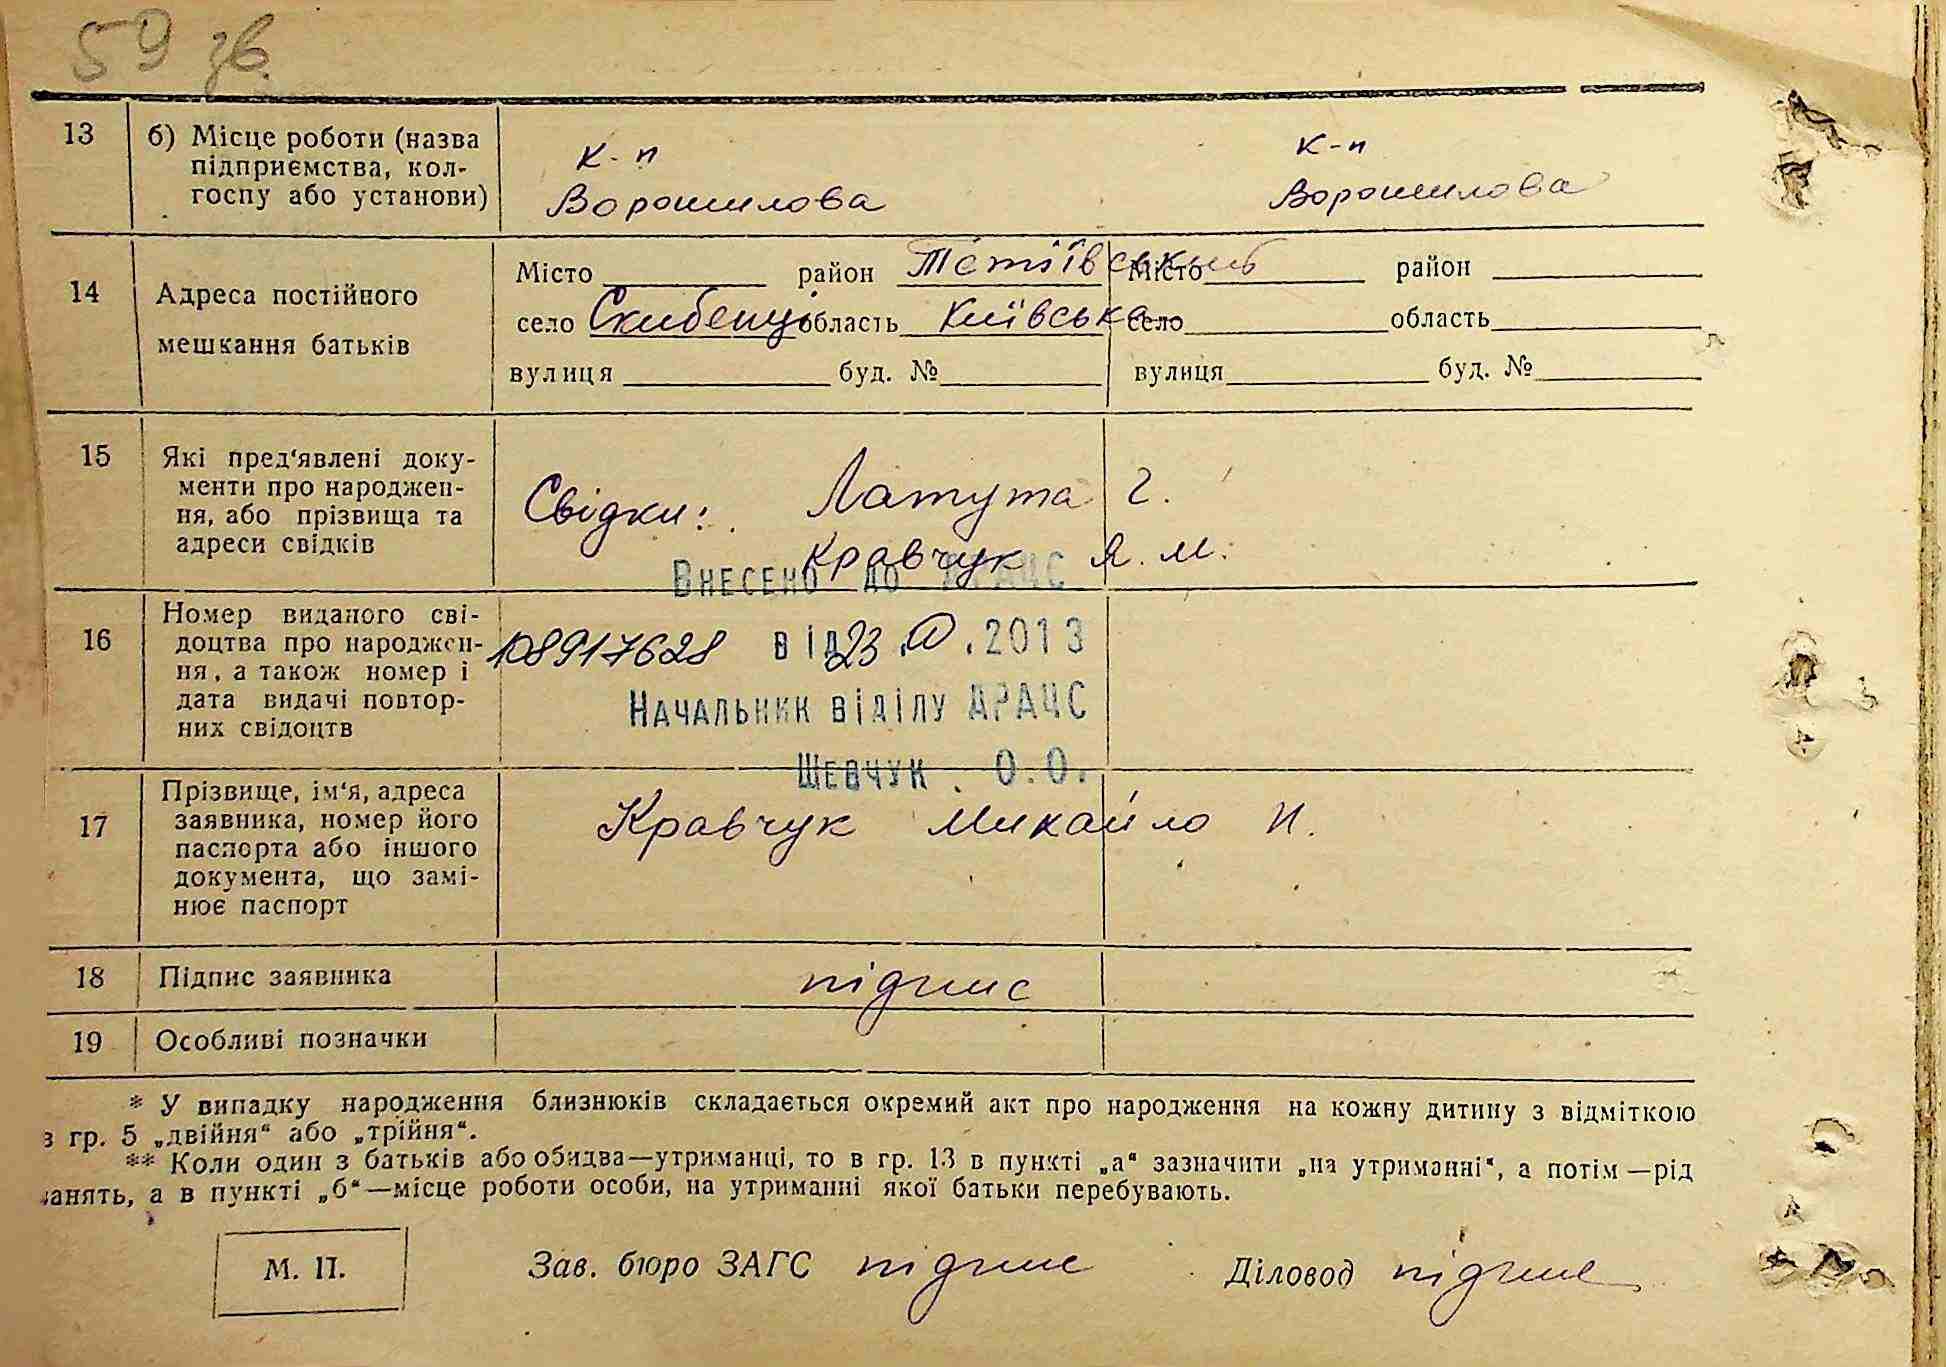 59 зв.
13 б) Місце роботи (назва підприємства, колгоспу або установи)
к-п
Ворошилова
к-п
Ворошилова
14 Адреса постійного мешкання батьків
Місто район Тетіївський
село Скибенці область Київська
вулиця буд. №
Місто район
село область
вулиця буд. №
15 Які пред'явлені доку-
менти про народжен-
ня, або прізвища та
адреси свідків
Свідки: Латута Г.
Кравчук Я. М.
Внесено до ДРАЦС
16 Номер виданого сві-
доцтва про народжен-
ня, а також номер і
дата видачі повтор-
них свідоцтв
108917628 від 23. .2013
Начальник відділу ДРАЦС
Шевчук О.О.
17 Прізвище, ім'я, адреса
заявника, номер його
паспорта або іншого
документа, що замі-
нює паспорт
Кравчук Михайло И.
18 Підпис заявника
підпис
19 Особливі позначки
* У випадку народження близнюків складається окремий акт про народження на кожну дитину з відміткою
в гр. 5 „двійня“ або „трійня“.
** Коли один з батьків або обидва—утриманці, то в гр. 13 в пункті „а“ зазначити „на утриманні“, а потім—рід
занять, а в пункті „б“—місце роботи особи, на утриманні якої батьки перебувають.
М. П.
Зав. бюро ЗАГС підпис
Діловод підпис